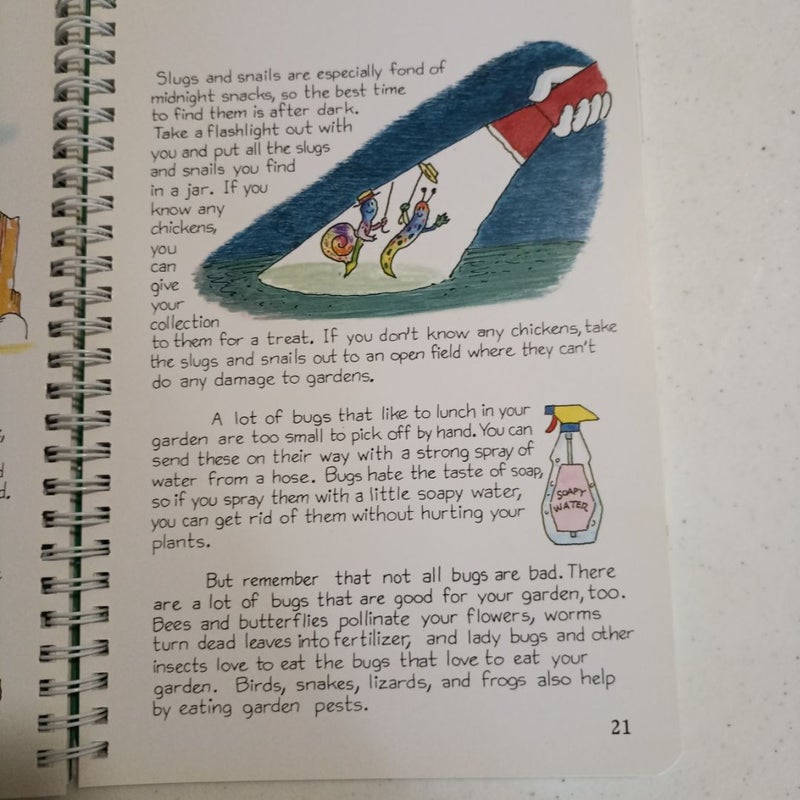 Slugs and snails are especially fond of
midnight snacks, so the best time
to find them is after dark.
Take a flashlight out with
you and put all the slugs
and snails you find
in a jar. If you
know any
chickens,
you
can
give
your
collection
to them for a treat. If you don't know any chickens, take
the slugs and snails out to an open field where they can't
do any damage to gardens.
A lot of bugs that like to lunch in your
garden are too small to pick off by hand. You can
send these on their way with a strong spray of
water from a hose. Bugs hate the taste of soap,
so if you spray them with a little soapy water,
you can get rid of them without hurting your
plants.
SOAPY
WATER
But remember that not all bugs are bad. There
are a lot of bugs that are good for your garden, too.
Bees and butterflies pollinate your flowers, worms
turn dead leaves into fertilizer, and lady bugs and other
insects love to eat the bugs that love to eat your
garden. Birds, snakes, lizards, and frogs also help
by eating garden pests.
21